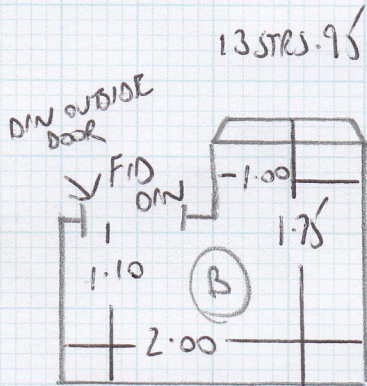 13 STRS .95
D/N OUTSIDE
DOOR
F/D
D/N
-1.00
1.75
1.10
B
2.00